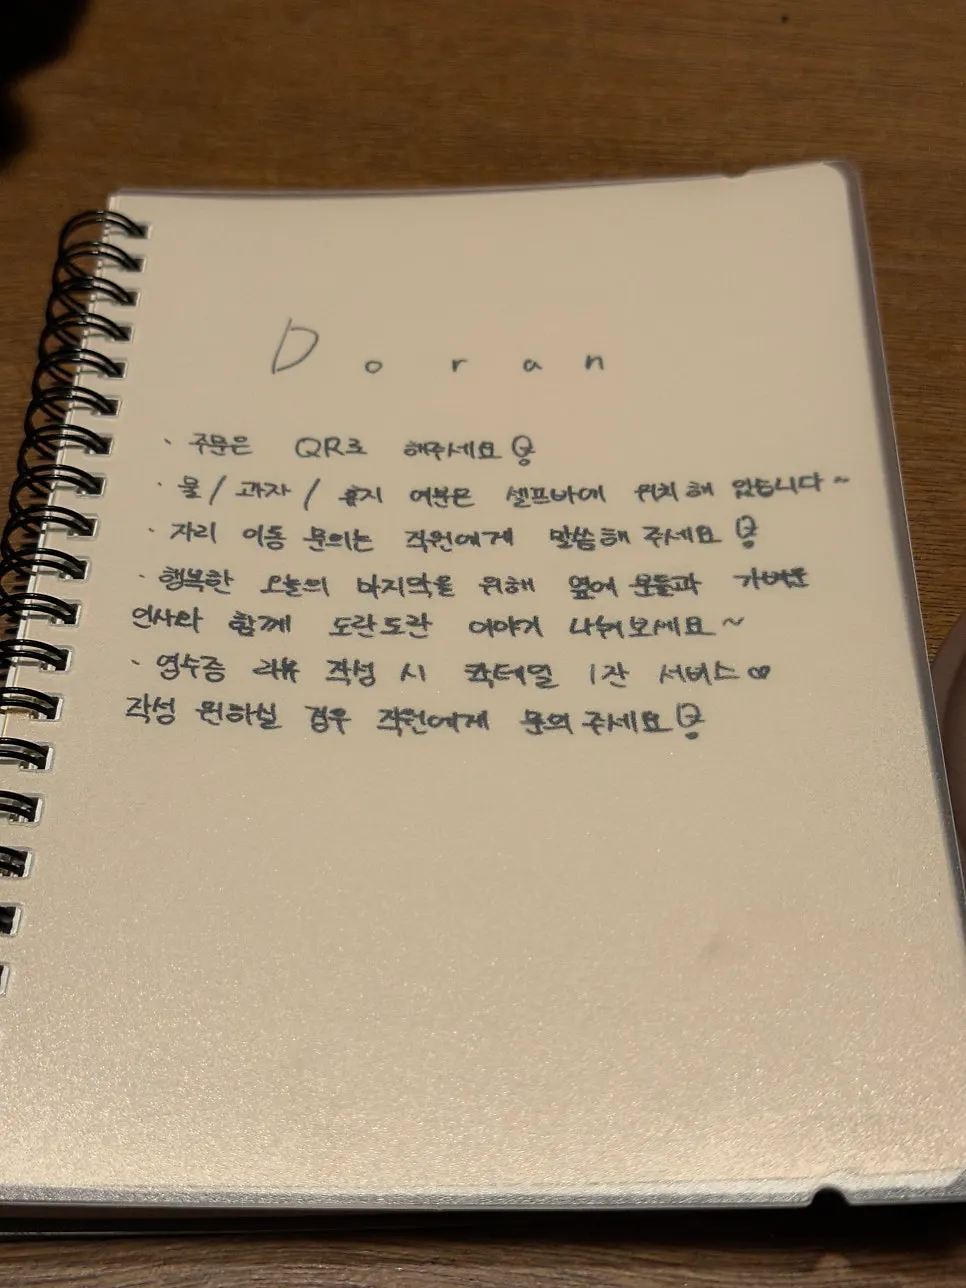 Doran
· 주문은 QR로 해주세요!
· 물/과자/휴지 여분은 셀프바에 위치해 있습니다~
· 자리 이동 문의는 직원에게 말씀해 주세요!
· 행복한 오늘의 마지막을 위해 옆에 분들과 가벼운
인사와 함께 도란도란 이야기 나눠보세요~
· 영수증 리뷰 작성 시 칵테일 1잔 서비스♡
작성 원하실 경우 직원에게 문의 주세요!